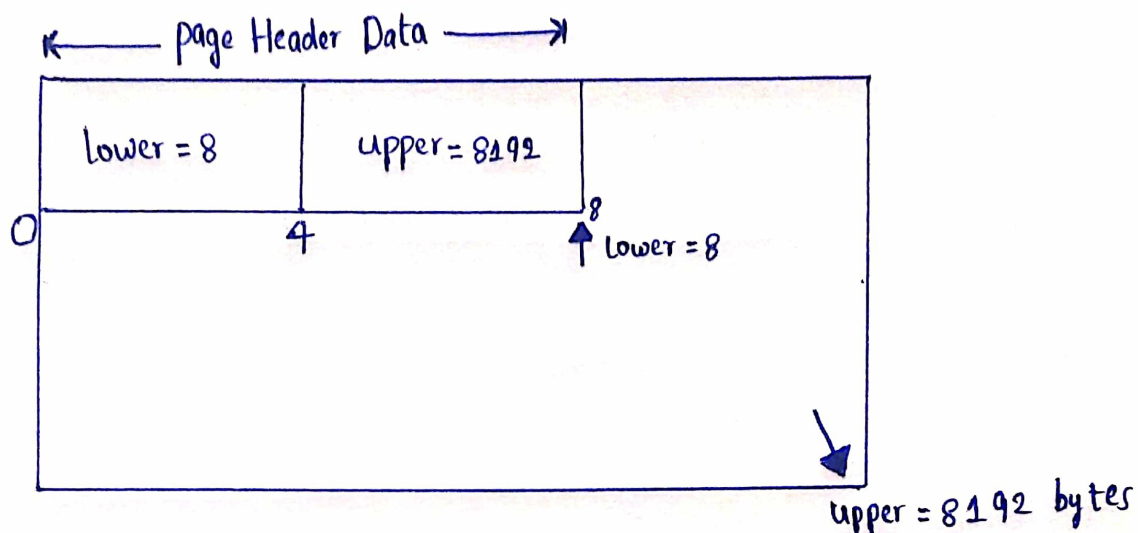 Page Header Data
lower = 8
upper = 8192
0
4
8
lower = 8
upper = 8192 bytes